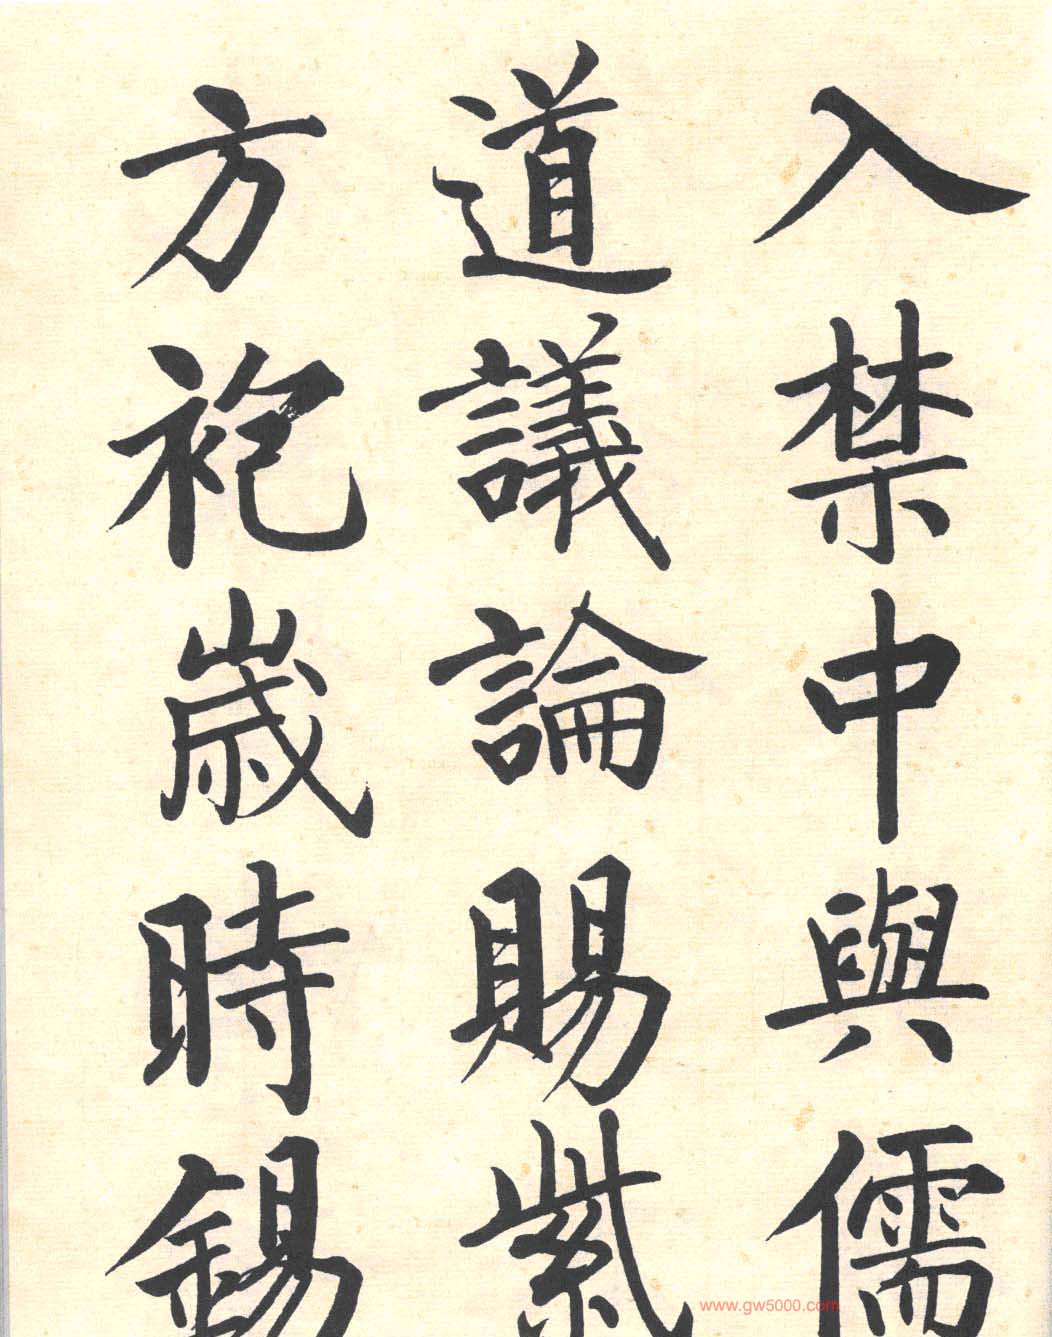 入禁中與儒
道議論賜紫
方袍歳時錫
www.gw5000.com